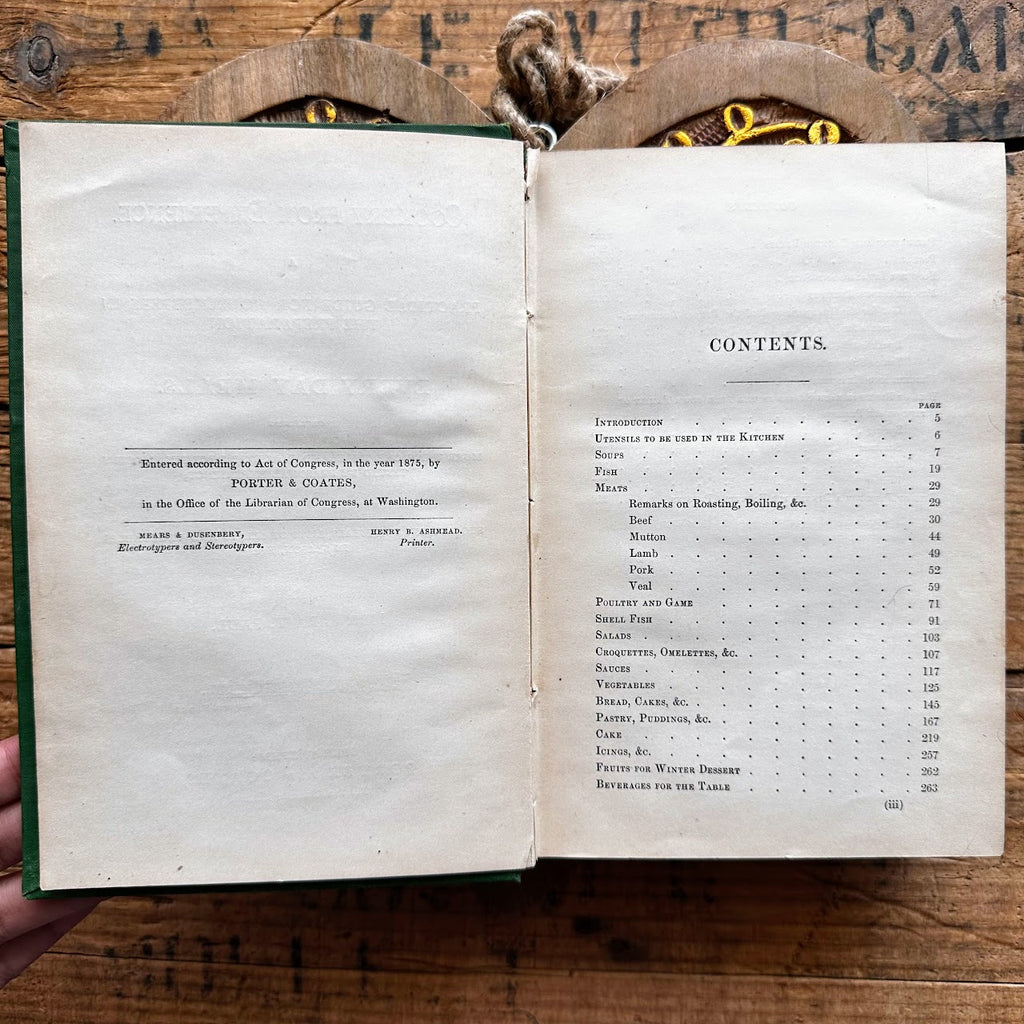 Entered according to Act of Congress, in the year 1875, by
PORTER & COATES,
in the Office of the Librarian of Congress, at Washington.
MEARS & DUSENBERY,
Electrotypers and Stereotypers.
HENRY B. ASHMEAD.
Printer.
CONTENTS.
PAGE
INTRODUCTION . . . . . . . . 5
UTENSILS TO BE USED IN THE KITCHEN . . . . . 6
SOUPS . . . . . . . . . . . 7
FISH . . . . . . . . . . . 19
MEATS . . . . . . . . . . . 29
Remarks on Roasting, Boiling, &c. . . . . . 29
Beef . . . . . . . . . . 30
Mutton . . . . . . . . . 44
Lamb . . . . . . . . . . 49
Pork . . . . . . . . . . 52
Veal . . . . . . . . . . 59
POULTRY AND GAME . . . . . . . . 71
SHELL FISH . . . . . . . . . . 91
SALADS . . . . . . . . . . . 103
CROQUETTES, OMELETTES, &c. . . . . . . . 107
SAUCES . . . . . . . . . . . 117
VEGETABLES . . . . . . . . . . 125
BREAD, CAKES, &c. . . . . . . . . . 145
PASTRY, PUDDINGS, &c. . . . . . . . . 167
CAKE . . . . . . . . . . . 219
ICINGS, &c. . . . . . . . . . . 257
FRUITS FOR WINTER DESSERT . . . . . . . 262
BEVERAGES FOR THE TABLE . . . . . . . 263
(iii)